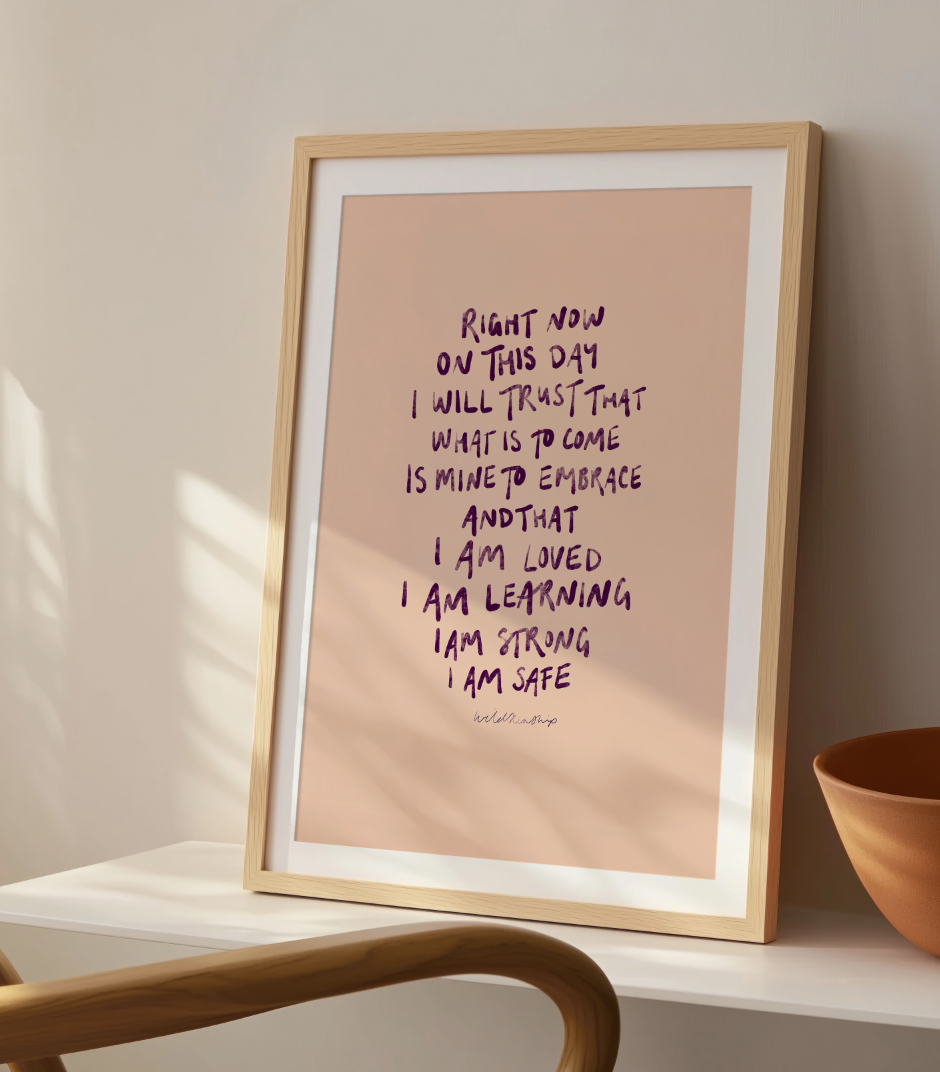 RIGHT NOW
ON THIS DAY
I WILL TRUST THAT
WHAT IS TO COME
IS MINE TO EMBRACE
AND THAT
I AM LOVED
I AM LEARNING
I AM STRONG
I AM SAFE
wildkinship